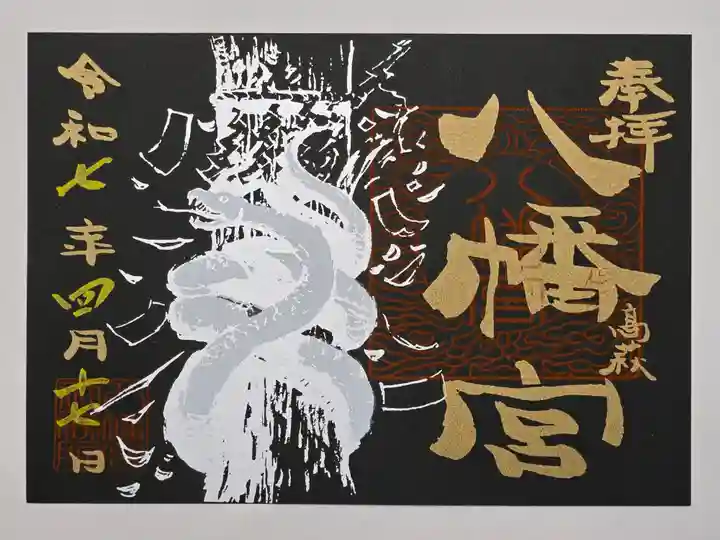 奉拝
八幡宮
高萩
令和七年四月廿七日